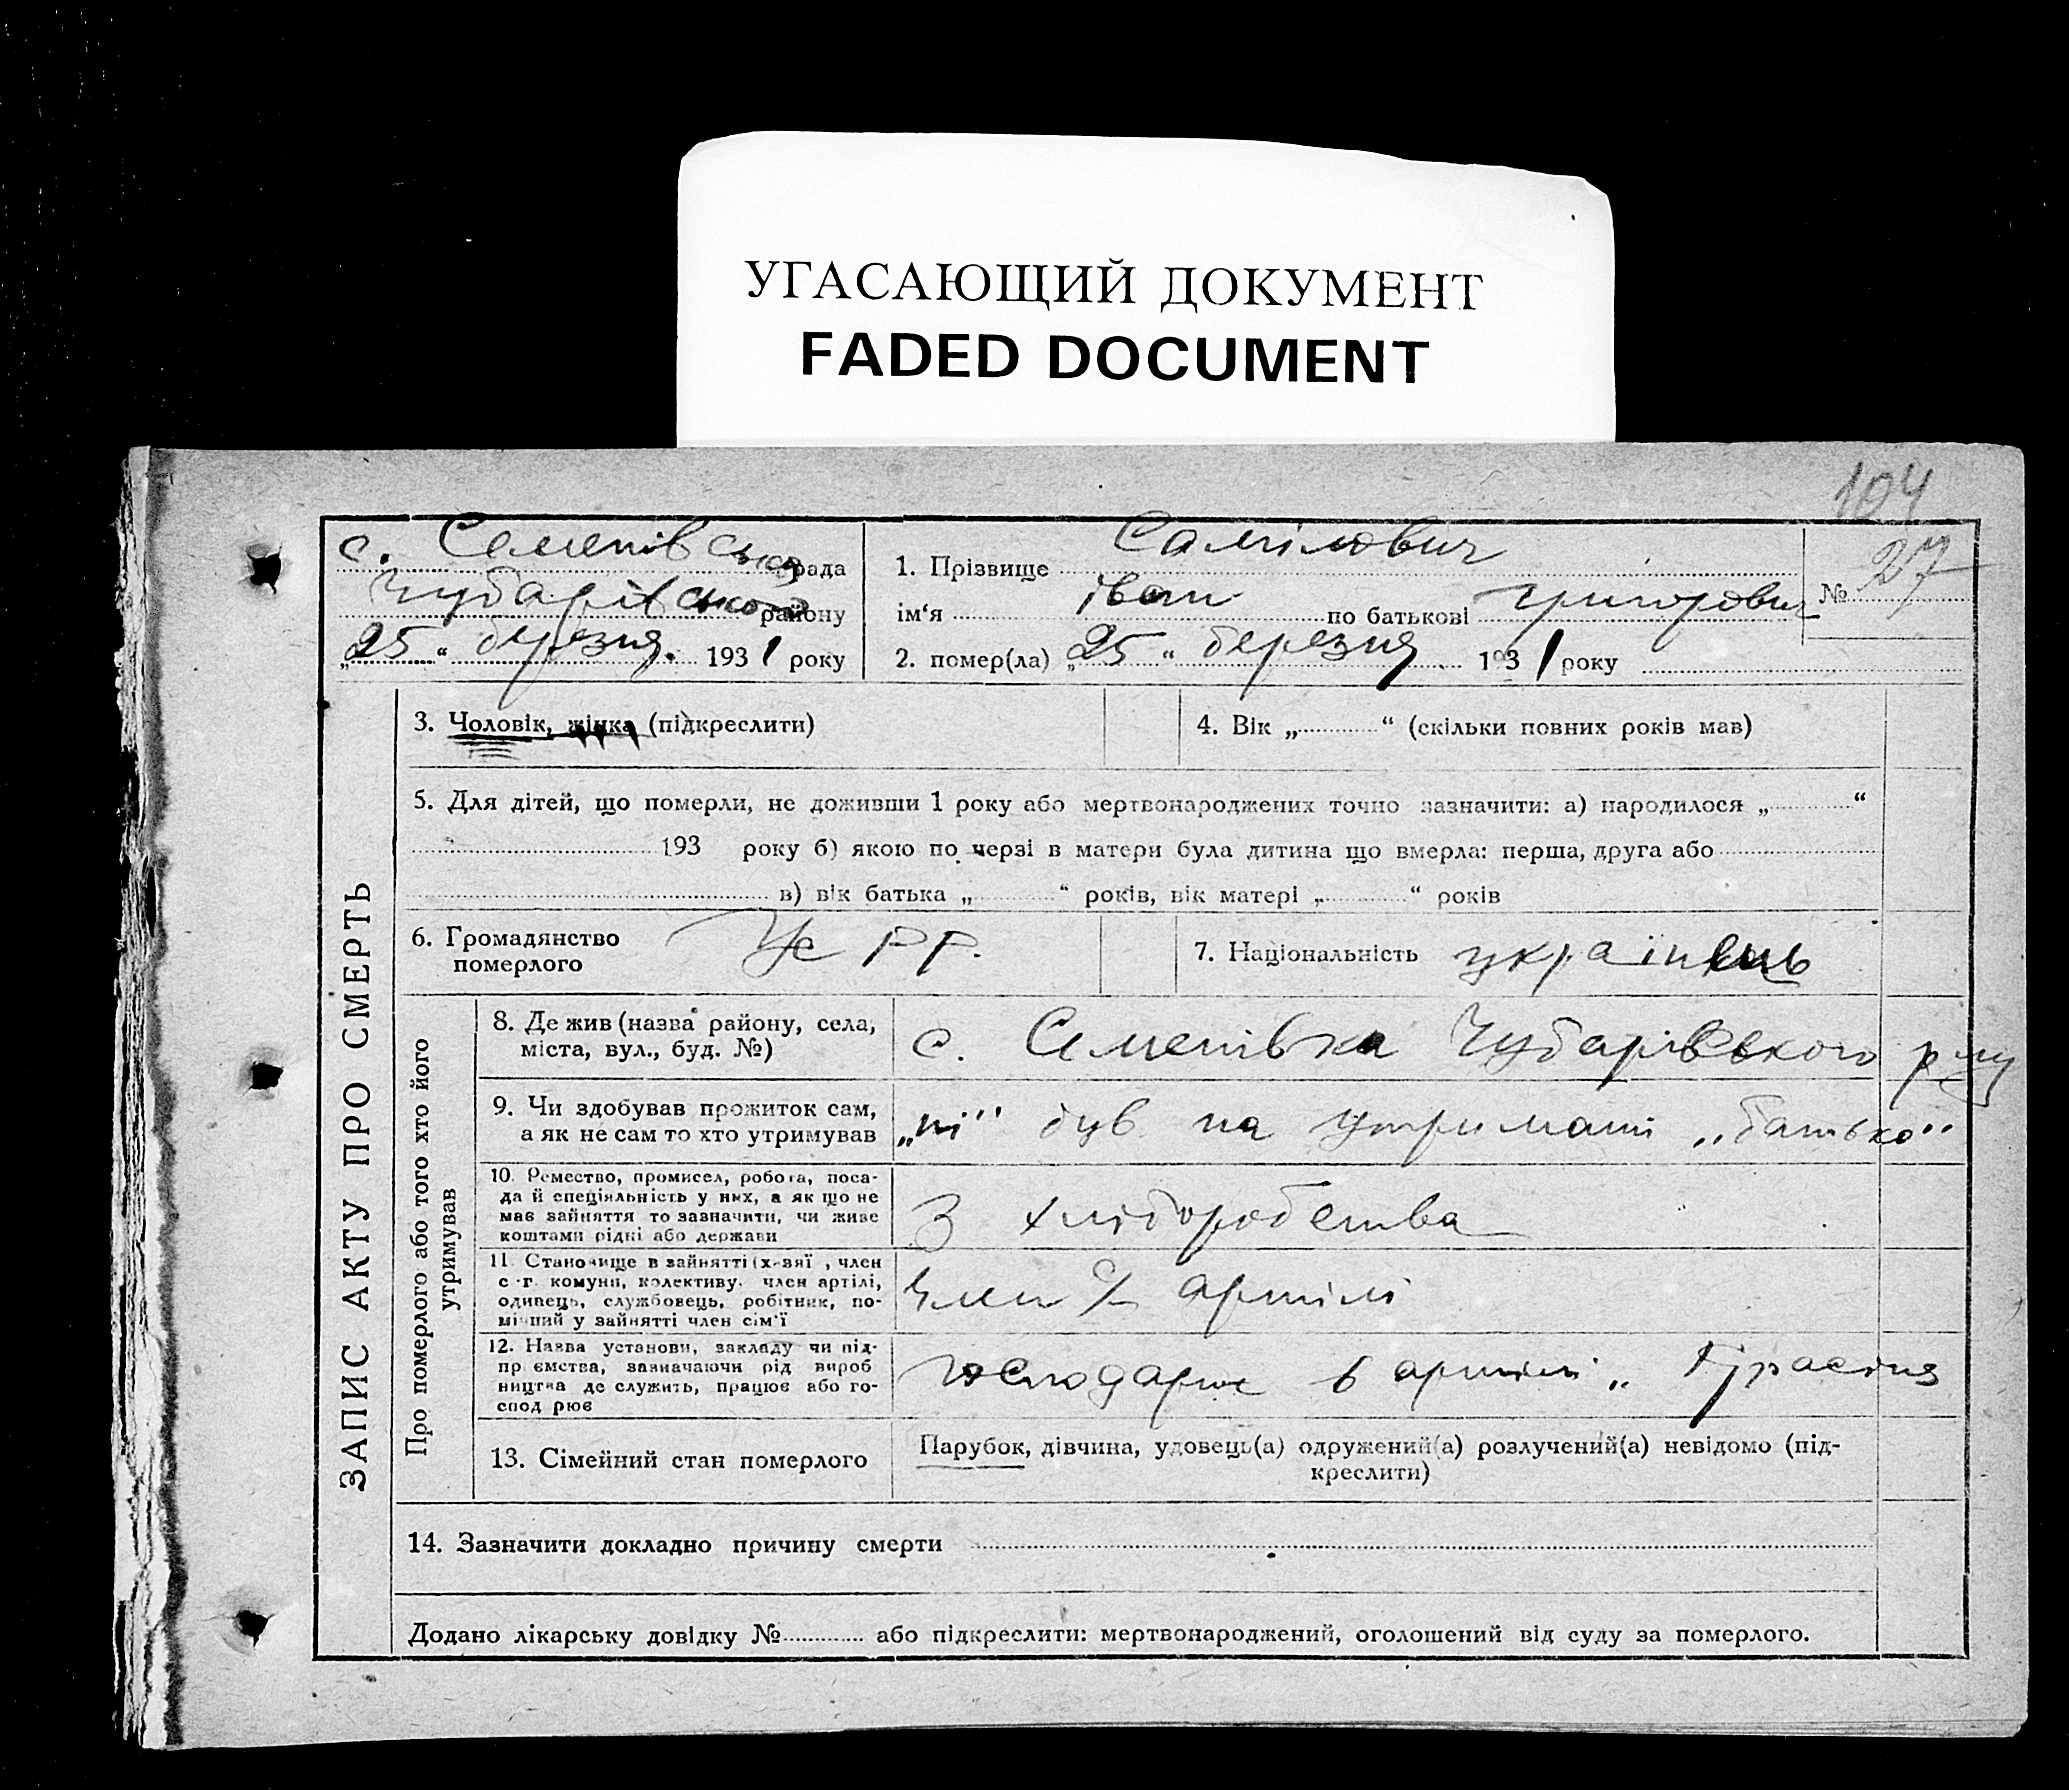 УГАСАЮЩИЙ ДОКУМЕНТ
FADED DOCUMENT
104
с. Семенівська рада
Чубарівського району
„25“ березня. 1931 року
1. Прізвище Самілович
ім‘я Іван по батькові Григорович
№ 27
2. помер(ла) „25“ березня 1931 року
ЗАПИС АКТУ ПРО СМЕРТЬ
3. Чоловік, жінка (підкреслити)
4. Вік „ “ (скільки повних років мав)
5. Для дітей, що померли, не доживши 1 року або мертвонароджених точно зазначити: а) народилося „ “
193 року б) якою по черзі в матери була дитина що вмерла: перша, друга або
в) вік батька „ “ років, вік матері „ “ років
6. Громадянство
померлого
УСРР.
7. Національність українець
Про померлого або того хто його
утримував
8. Де жив (назва району, села,
міста, вул., буд. №)
с. Семенівка Чубарівського р-ну
9. Чи здобував прожиток сам,
а як не сам то хто утримував
„ні“ був на утримані „батько“
10. Ремество, промисел, робота, поса-
да й спеціяльність у них, а як що не
має зайняття то зазначити, чи живе
коштами рідні або держави
З хліборобства
11. Становище в зайнятті (х-вяї , член
с-г. комуни, колективу, член артілі,
одинець, службовець, робітник, по-
мічний у зайнятті член сім‘ї
Член с/г артілі
12. Назва установи, закладу чи під-
пр ємства, зазначаючи рід вироб
ництва де служить, працює або го-
спод рює
господарює в артілі „
13. Сімейний стан померлого
Парубок, дівчина, удовець(а) одружений(а) розлучений(а) невідомо (під-
креслити)
14. Зазначити докладно причину смерти
Додано лікарську довідку № або підкреслити: мертвонароджений, оголошений від суду за померлого.